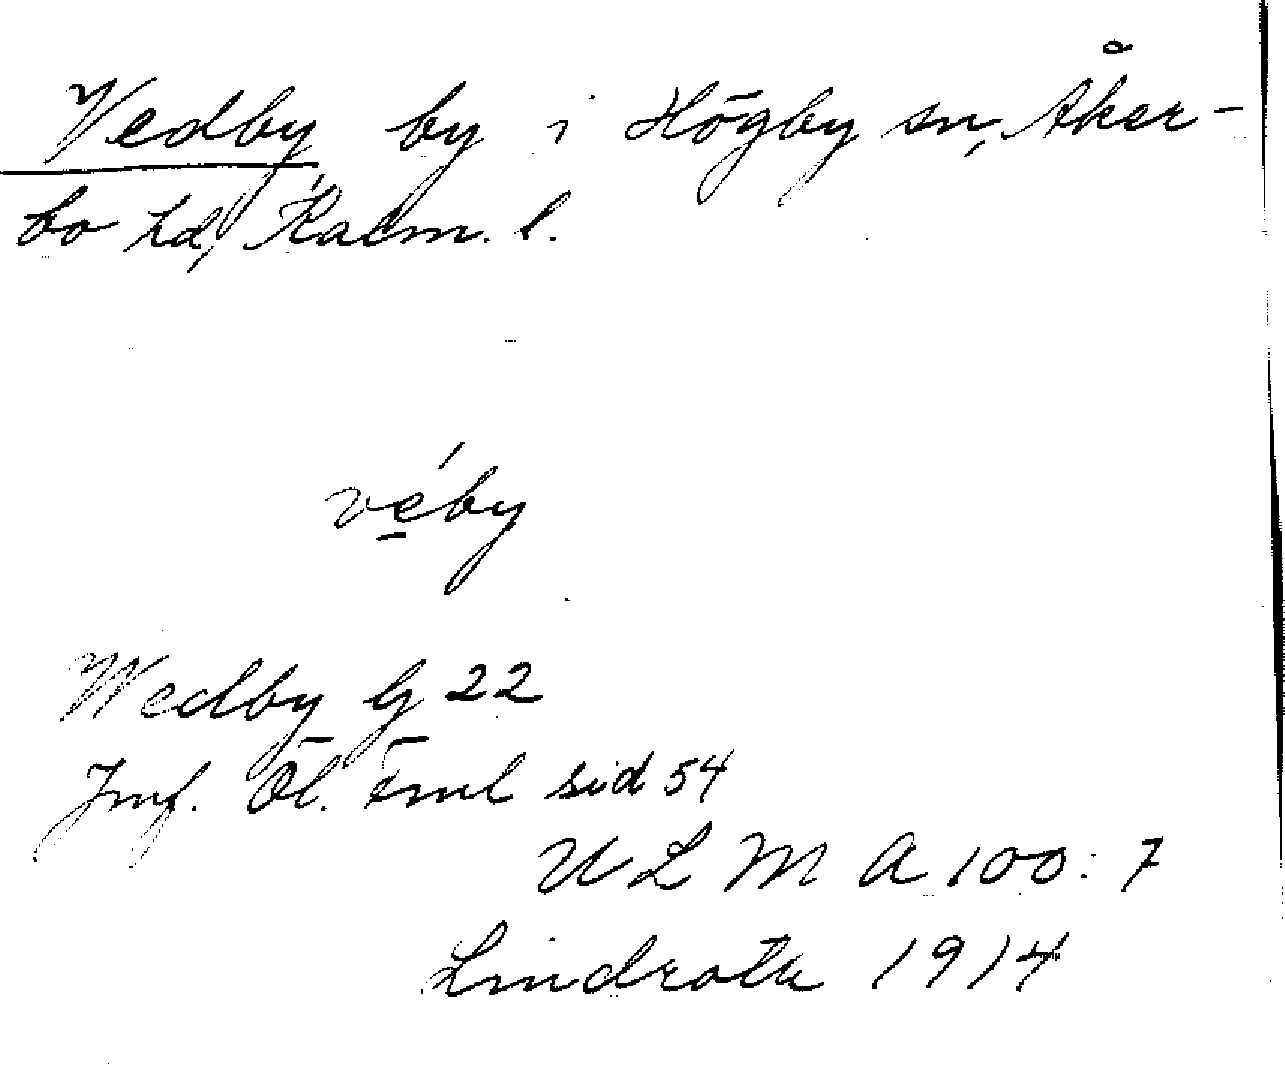 Vedby by i Högby sn, Åker-
bo hd, Kalm. l.
véby
Wedby G 22
Jmf. Öl. Fml sid 54
U L M A 100:7
Lindroth 1914